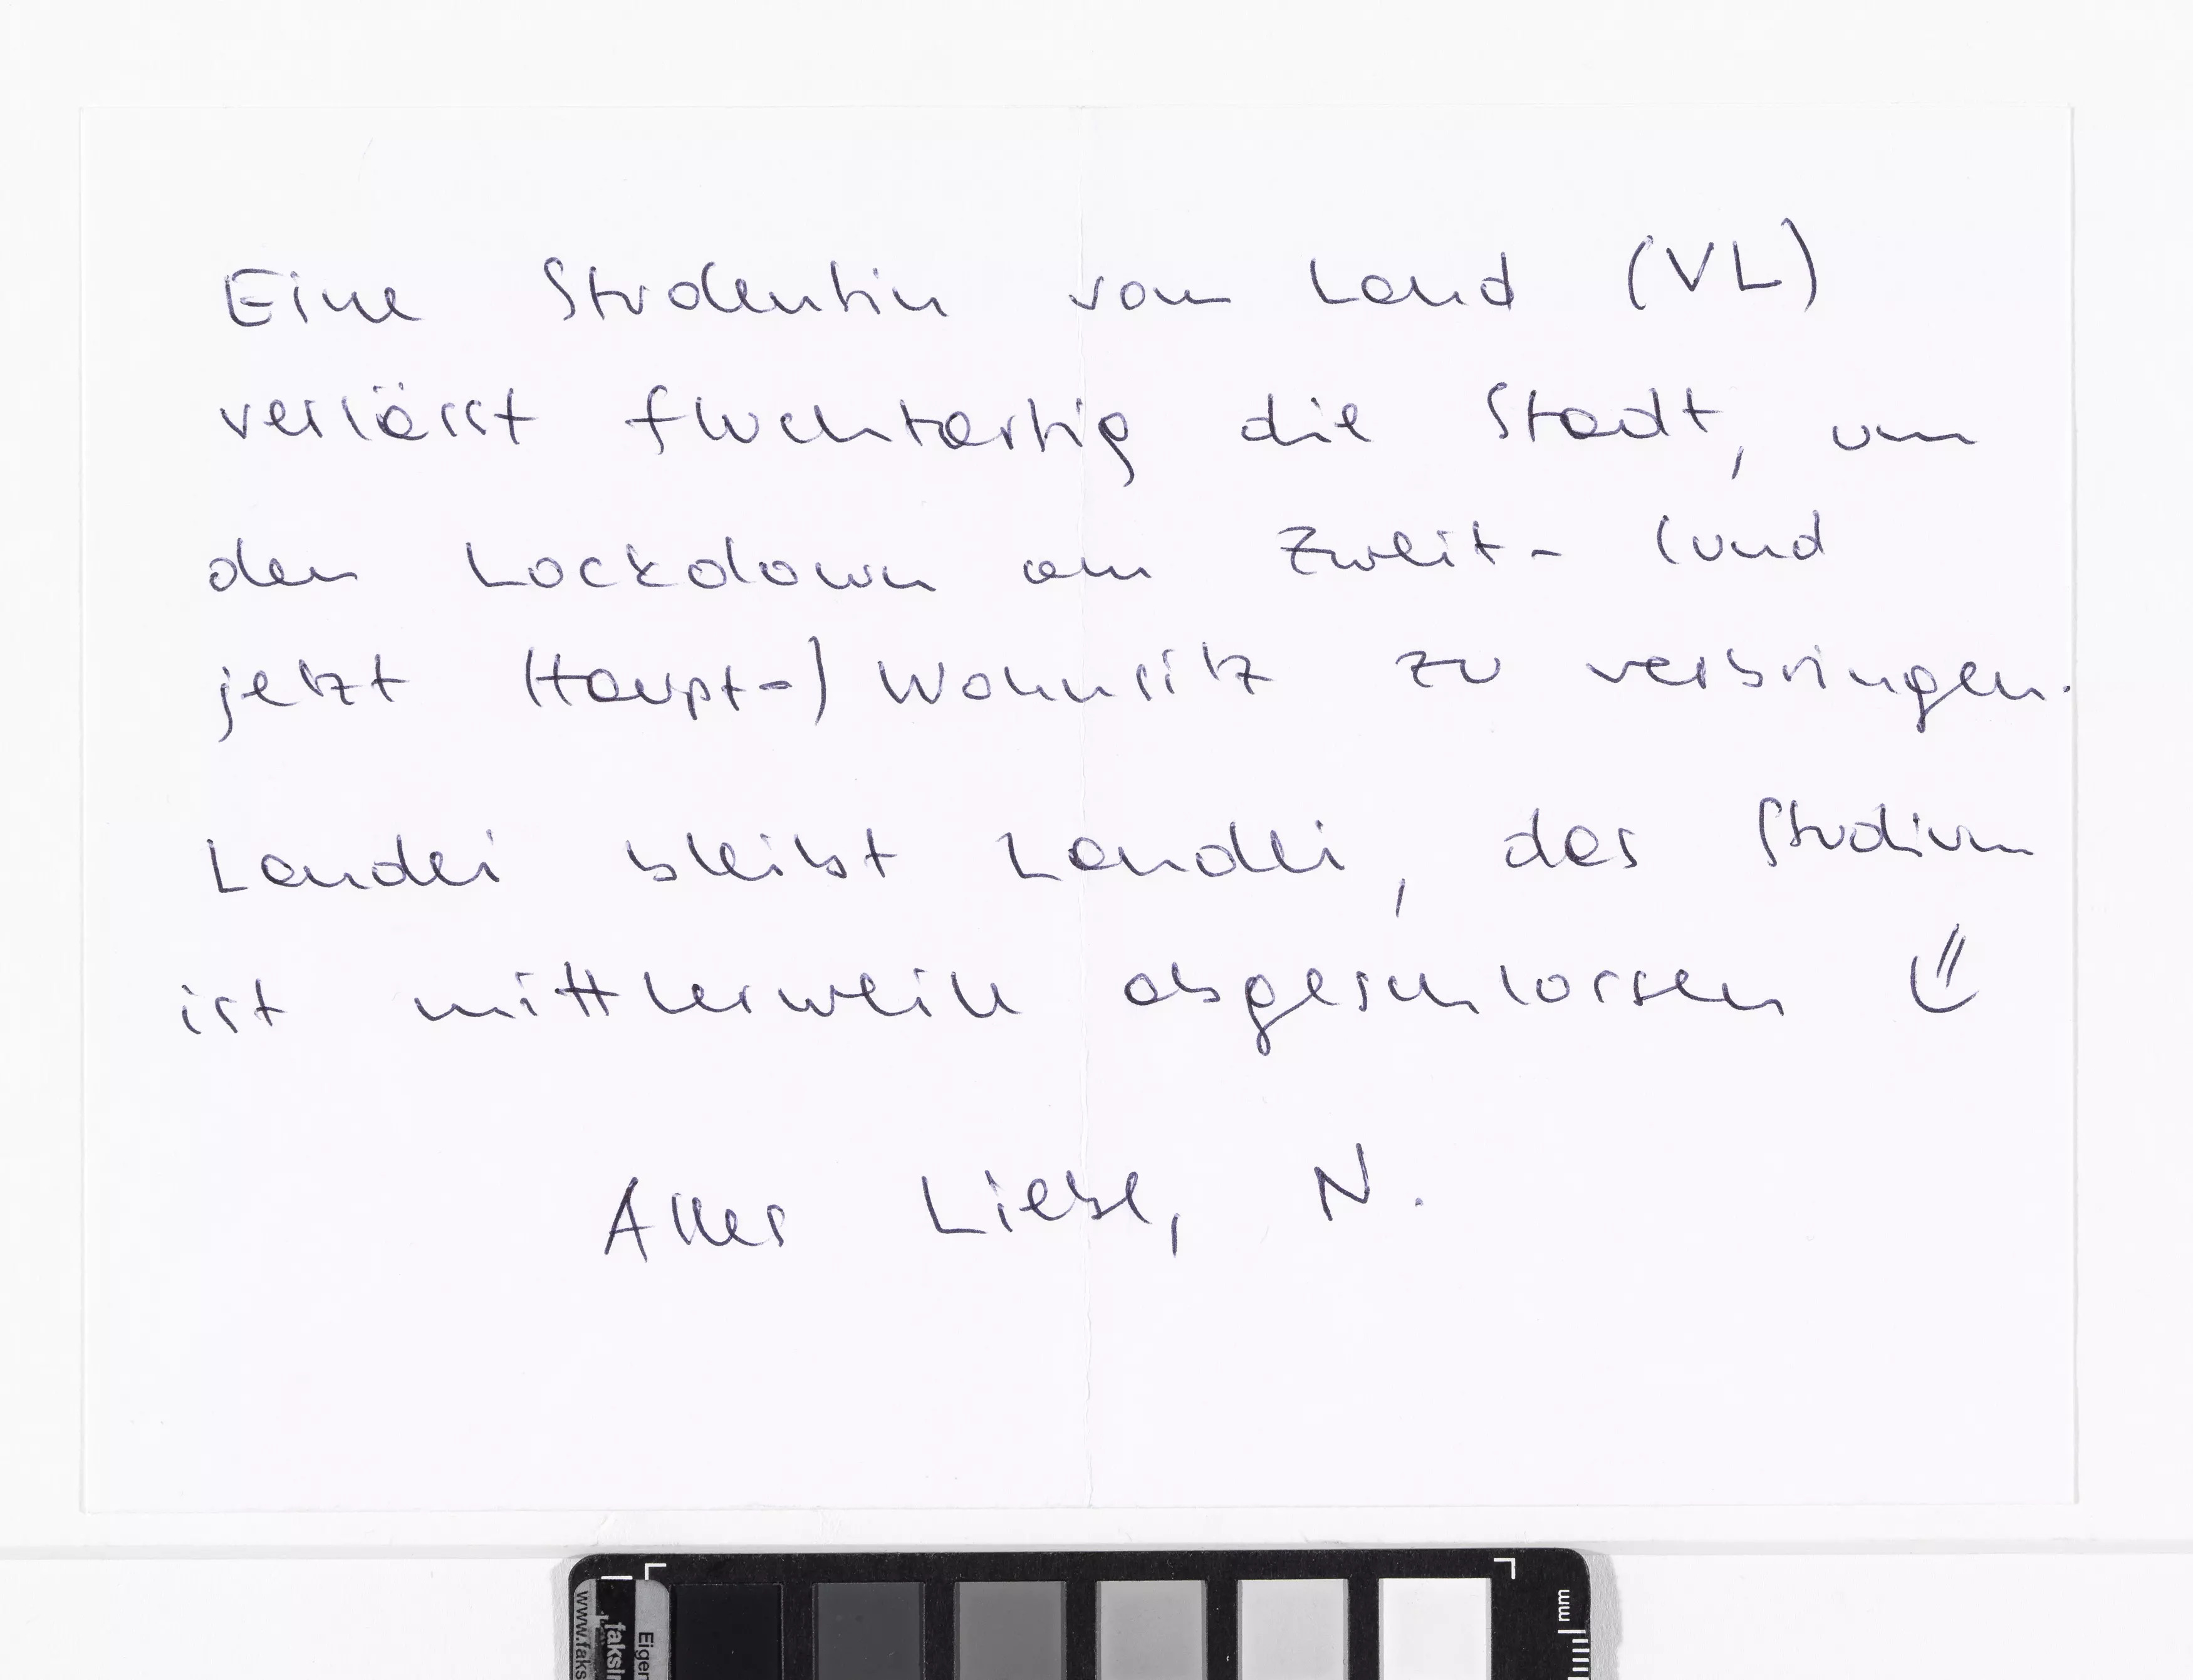 Eine Studentin vom Land (VL)
verlässt fluchtartig die Stadt, um
den Lockdown am Zweit- (und
jetzt Haupt-) Wohnsitz zu verbringen.
Landei bleibt Landei, das Studium
ist mittlerweile abgeschlossen
Alles Liebe, N.
mm
www.faks
faksi
Eigen